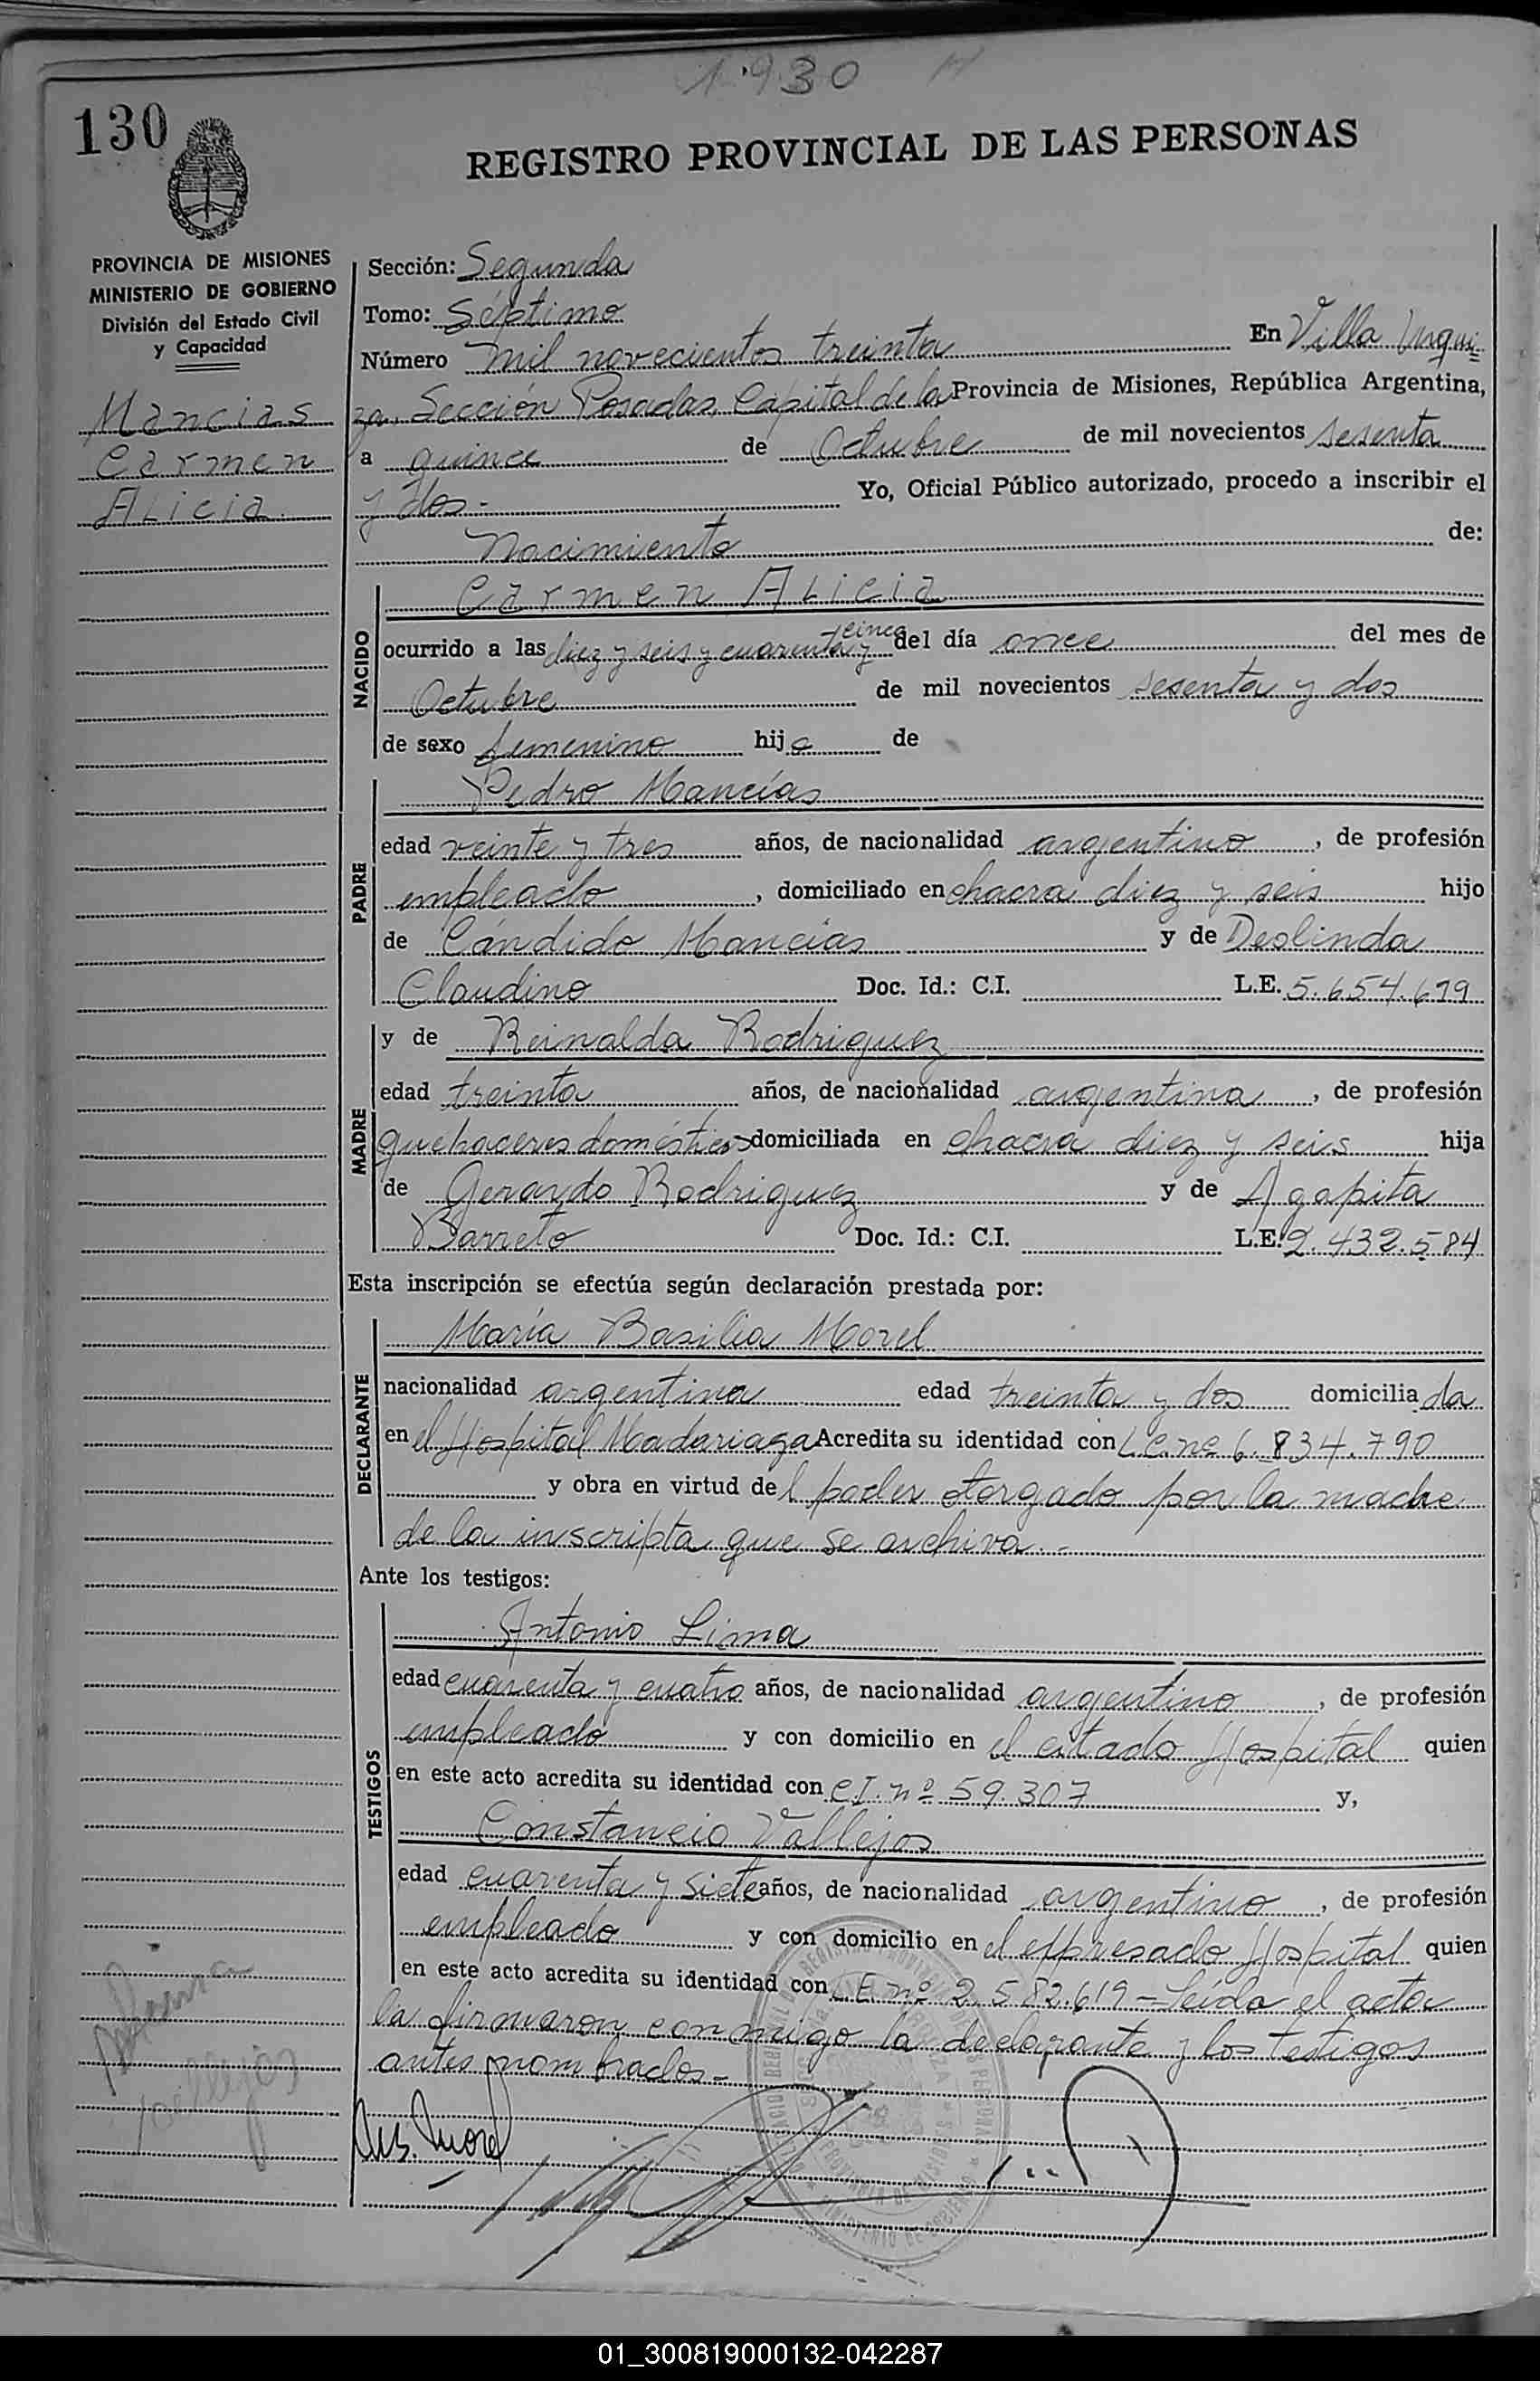 1930
130
REGISTRO PROVINCIAL DE LAS PERSONAS
PROVINCIA DE MISIONES
MINISTERIO DE GOBIERNO
División del Estado Civil
y Capacidad
Mancias
Carmen
Alicia.
Sección: Segunda
Tomo: Séptimo
Número mil novecientos treinta En Villa Urqui
za, Sección Posadas, Capital de la Provincia de Misiones, República Argentina,
a quince de Octubre de mil novecientos sesenta
y dos.- Yo, Oficial Público autorizado, procedo a inscribir el
Nacimiento de:
NACIDO
Carmen Alicia
ocurrido a las diez y seis y cuarenta y cinco del día once del mes de
Octubre de mil novecientos sesenta y dos
de sexo femenino hija de
PADRE
Pedro Mancías
edad veinte y tres años, de nacionalidad argentino, de profesión
empleado, domiciliado en chacra diez y seis hijo
de Cándido Mancías y de Deolinda
Claudino Doc. Id.: C.I. L.E. 5.654.699
MADRE
y de Reinalda Rodriguez
edad treinta años, de nacionalidad argentina, de profesión
quehaceres domésticos domiciliada en chacra diez y seis hija
de Gerardo Rodriguez y de Agapita
Barreto Doc. Id.: C.I. L.E. 2.432.584
Esta inscripción se efectúa según declaración prestada por:
DECLARANTE
María Basilia Morel
nacionalidad argentina edad treinta y dos domiciliada
en el Hospital Madariaga Acredita su identidad con L.C. nº 6.834.790
y obra en virtud del poder otorgado por la madre
de la inscripta que se archiva.-
Ante los testigos:
TESTIGOS
Antonio Lima
edad cuarenta y cuatro años, de nacionalidad argentino, de profesión
empleado y con domicilio en el citado Hospital quien
en este acto acredita su identidad con C.I. nº 59.307 y,
Constancio Vallejos
edad cuarenta y siete años, de nacionalidad argentino, de profesión
empleado y con domicilio en el expresado Hospital quien
en este acto acredita su identidad con L.E. nº 2.582.619- Leída el acta
la firmaron conmigo la declarante y los testigos
antes nombrados.-
Vallejos
M.B. Morel
01_300819000132-042287